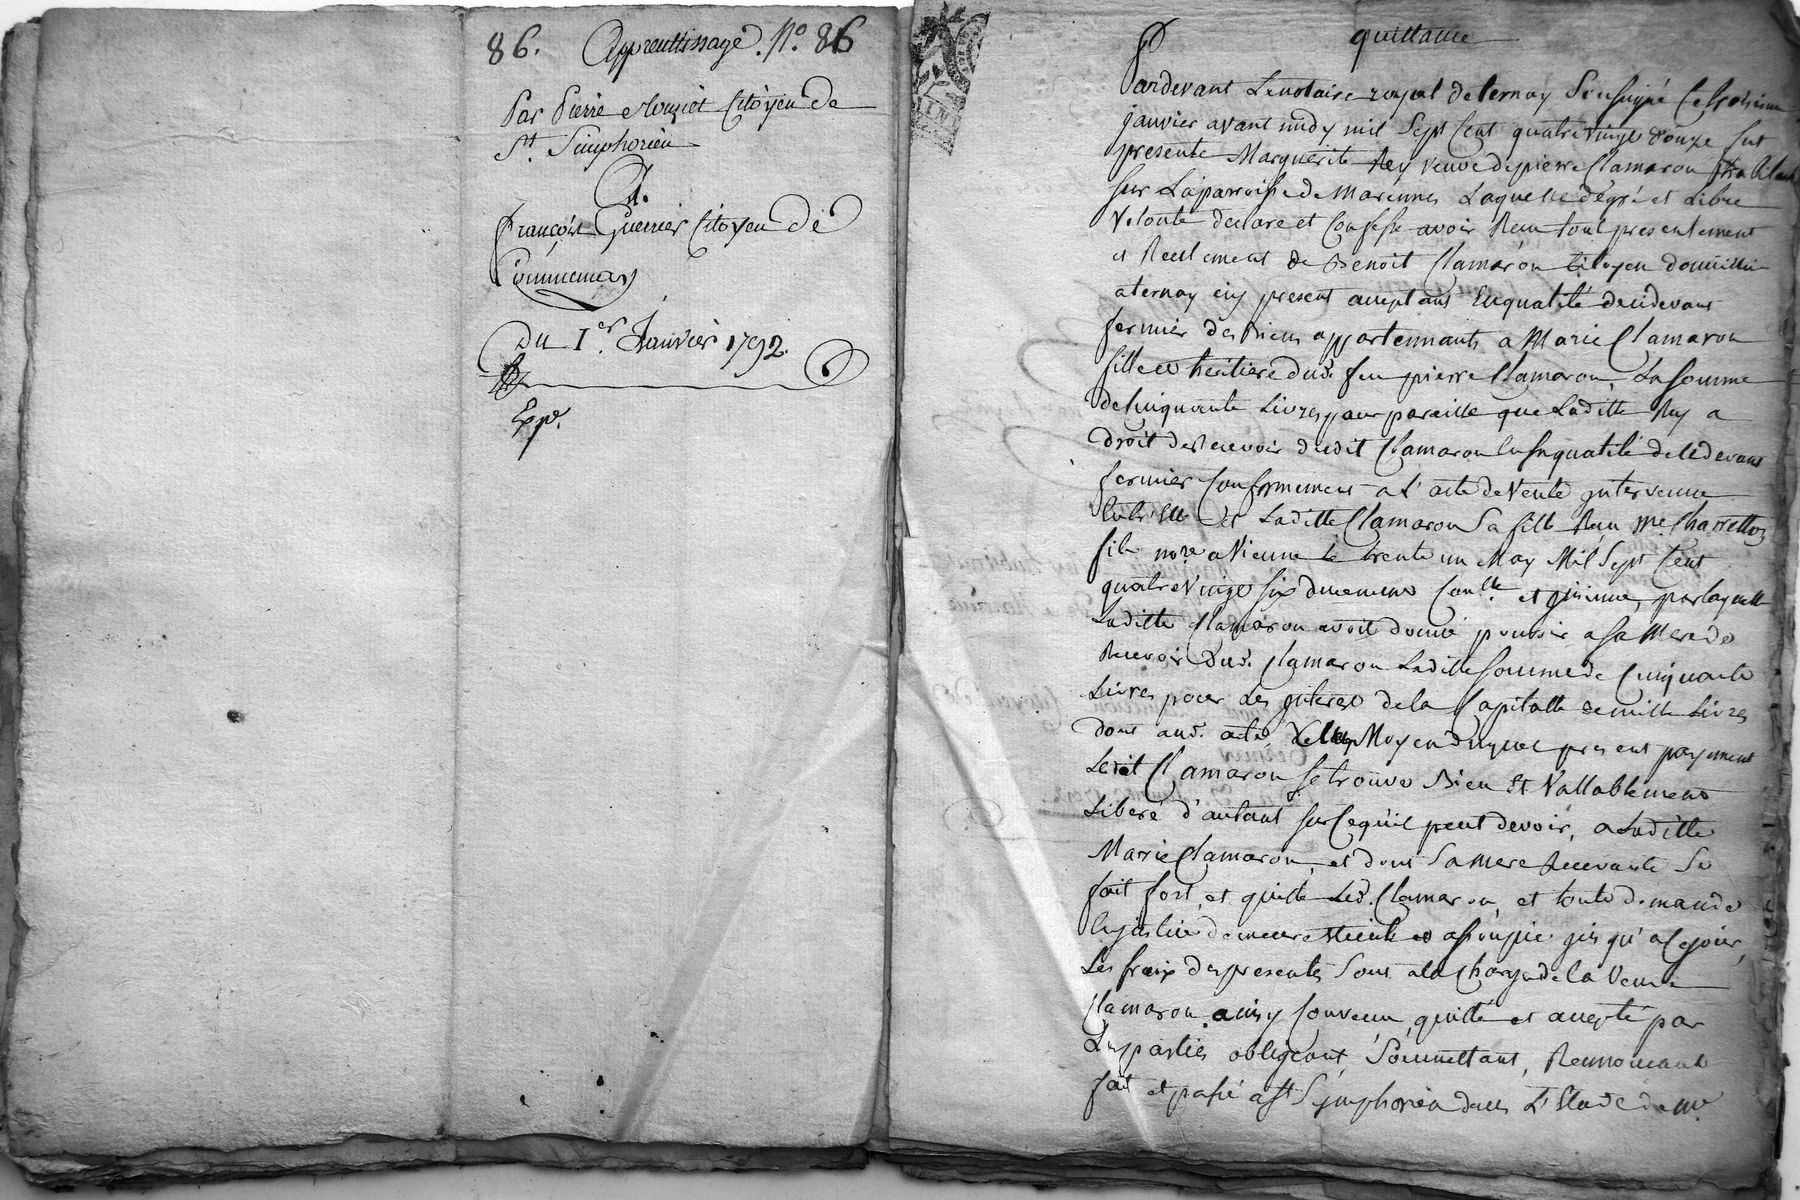 86. Apprentissage. N.o 86
Par Pierre Mouziot Citoyen De
St. Simphorien
A.
François Guerrier Citoyen de
Communay
Du 1er. Janvier 1792.
Expe.
quittance
Pardevant Le notaire royal de ternay Soussigné Ce troisieme
janvier avant midy mil Sept Cent quatre vingt douze fut
presente Marguerite Rey veuve de pierre Clamaron habitante
sur La parroisse de Marennes Laquelle de gré et Libre
Volonté declare et Confesse avoir Reçu tout presentement
et Reellement de Benoit Clamaron Citoyen domicillié
a ternay icy present acceptant En qualité de cidevant
fermier des biens appartennants a Marie Clamaron
fille et héritiere dud. feu pierre Clamaron, La somme
de Cinquante Livres pour pareille que Laditte Rey a
droit de Recevoir dudit Clamaron En sa qualité de Cidevant
fermier Conformement a L'acte de Vente intervenue
Entr'Elle et Laditte Clamaron Sa fille Reçu Me. Charretton
fils nore a Vienne le trente un May Mil Sept Cent
quatre Vingt Six duement Conllé. et insinué, par laquelle
Laditte Clamaron avoit donné pouvoir a sa Mere de
Recevoir dud. Clamaron Laditte somme de Cinquante
Livres pour Les interest de la Capitalle de mille Livres
dont aud. acte, Au Moyen duquel present payement
Ledit Clamaron se trouve Bien Et Vallablement
Liberé d'autant sur Ce qu'il peut devoir, a Laditte
Marie Clamaron, et dont Sa Mere Recevante Se
fait fort, et quitte Led. Clamaron, et toute demande
En justice demeure Eteinte et assoupie jusqu'a Ce jour,
Les fraix des presentes Sont a la Charge de la Veuve
Clamaron ainsy Convenu, quitté et accepté par
Les parties obligeant, Soumettant, Renonceant
fait et passé a St Symphorien dans L'Etude de Me.